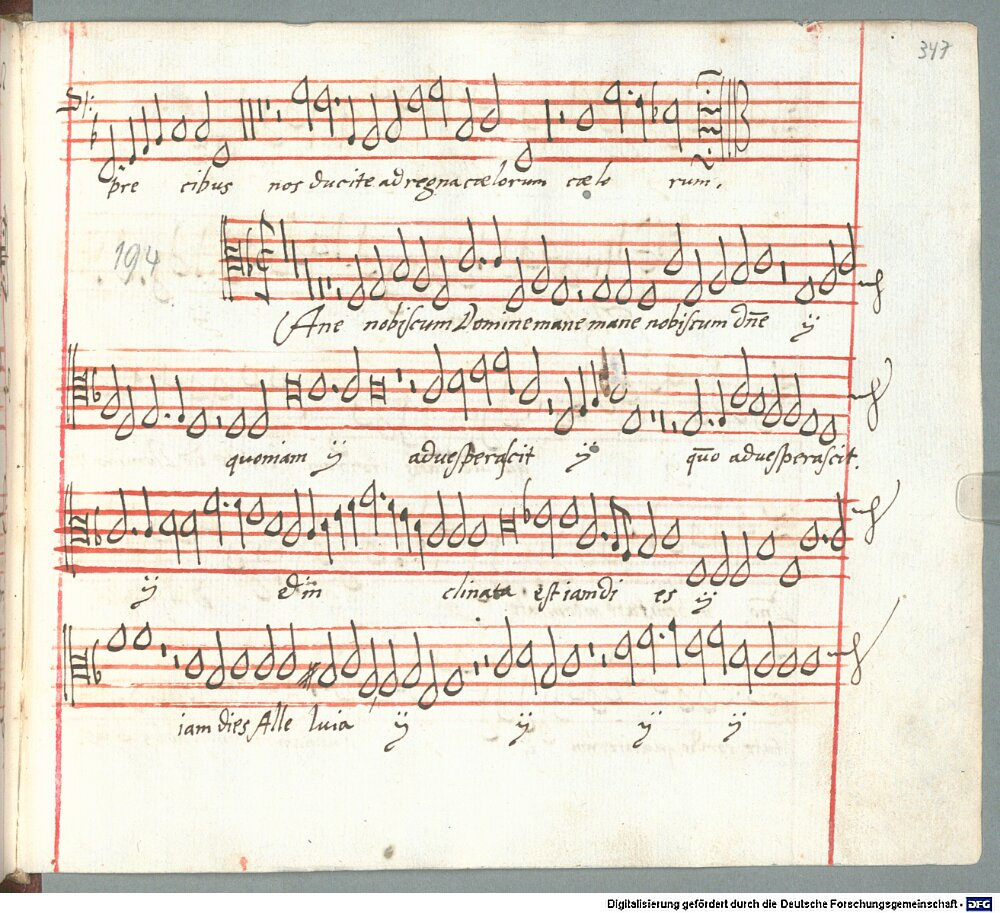 347
pre cibus nos ducite ad regna cælorum cælo rum.
194
Ane nobiscum Domine mane mane nobiscum dñe ij
quoniam ij advesperascit ij quo advesperascit.
ij et in clinata est iam di es ij
iam dies Alle luia ij ij ij ij
Digitalisierung gefördert durch die Deutsche Forschungsgemeinschaft - DFG